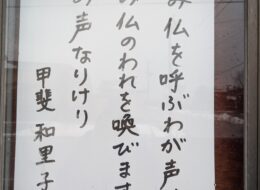 み仏を呼ぶわが声
み仏のわれを喚びます
み声なりけり
甲斐和里子